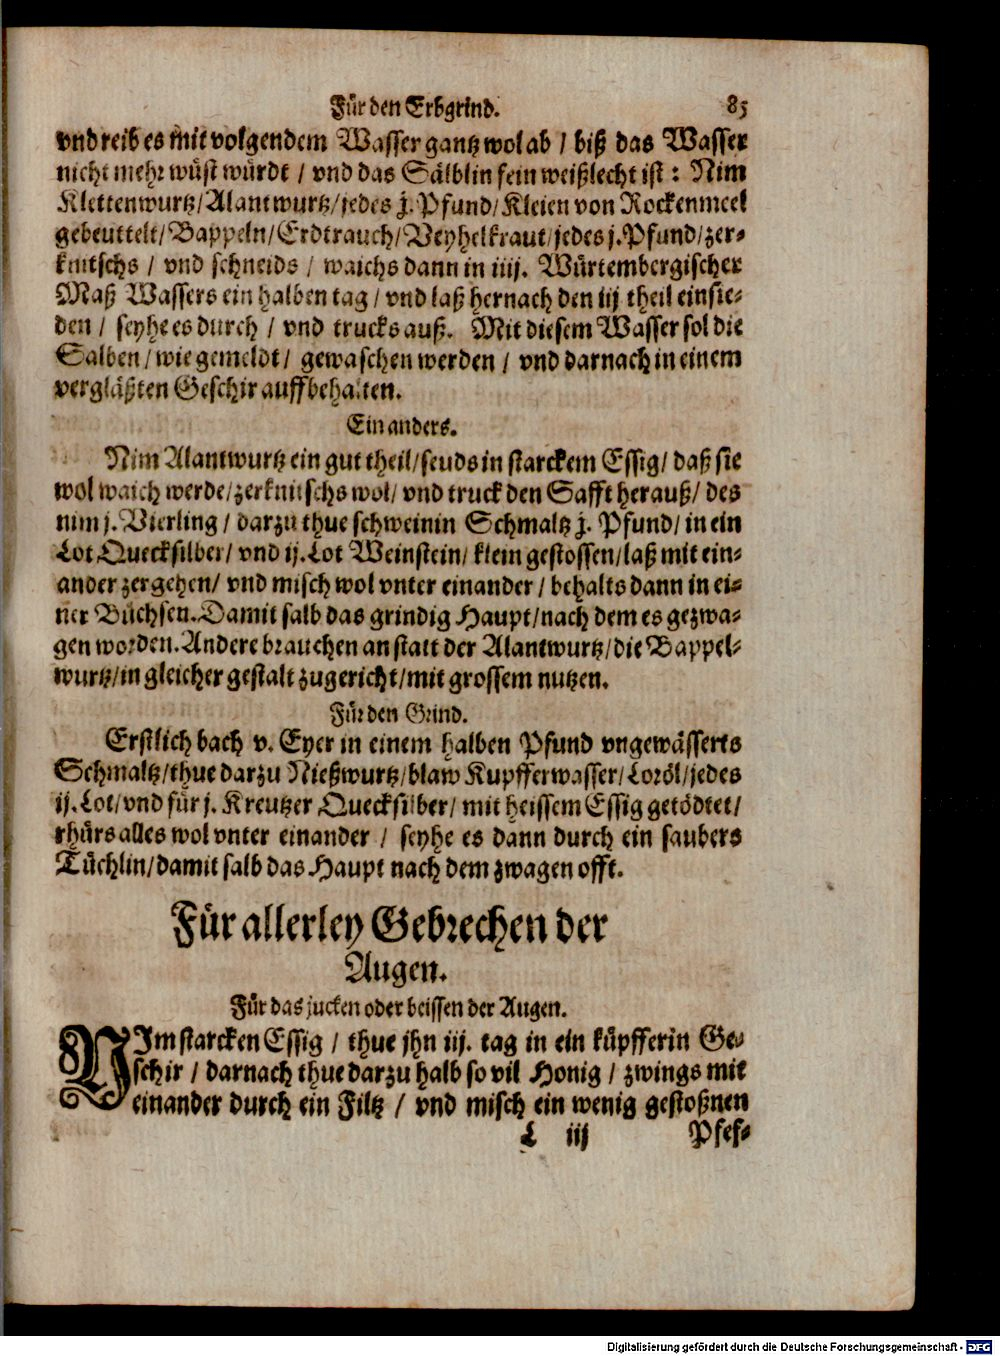 Für den Erbgrind. 85
vnd reib es mit volgendem Wasser gantz wol ab / biß das Wasser
nicht mehr wüst würdt / vnd das Sälblin fein weißlecht ist : Nim
Klettenwurtz/Alantwurtz/jedes j. Pfund/Kleien von Rockenmeel
gebeuttelt/Bappeln/Erdtrauch/Veyhelkraut/jedes j. Pfund/zer-
knitschs / vnd schneids / waichs dann in iiij. Würtembergischer
Maß Wassers ein halben tag / vnd laß hernach den iij theil einsie-
den / seyhe es durch / vnd trucks auß. Mit diesem Wasser sol die
Salben/wie gemeldt/ gewaschen werden / vnd darnach in einem
vergläßten Geschir auffbehalten.
Ein anders.
Nim Alantwurtz ein gut theil/seuds in starckem Essig/ daß sie
wol waich werde/zerknitschs wol/ vnd truck den Safft herauß/ des
nim j. Vierling / darzu thue schweinin Schmaltz j. Pfund/ in ein
Lot Quecksilber/ vnd ij. Lot Weinstein/ klein gestossen/laß mit ein-
ander zergehen/ vnd misch wol vnter einander / behalts dann in ei-
ner Büchsen. Damit salb das grindig Haupt/nach dem es gezwa-
gen worden. Andere brauchen an statt der Alantwurtz/die Bappel-
wurtz/in gleicher gestalt zugericht/mit grossem nutzen.
Für den Grind.
Erstlich bach v. Eyer in einem halben Pfund vngewässerts
Schmaltz/thue darzu Nießwurtz/blaw Kupfferwasser/Loröl/jedes
ij. Lot/vnd für j. Kreutzer Quecksilber/ mit heissem Essig getödtet/
rhürs alles wol vnter einander / seyhe es dann durch ein saubers
Tüchlin/damit salb das Haupt nach dem zwagen offt.
Für allerley Gebrechen der
Augen.
Für das jucken oder beissen der Augen.
NIm starcken Essig / thue jhn iij. tag in ein küpfferin Ge-
schir / darnach thue darzu halb so vil Honig / zwings mit
einander durch ein Filtz / vnd misch ein wenig gestoßnen
L iij Pfef-
Digitalisierung gefördert durch die Deutsche Forschungsgemeinschaft - DFG